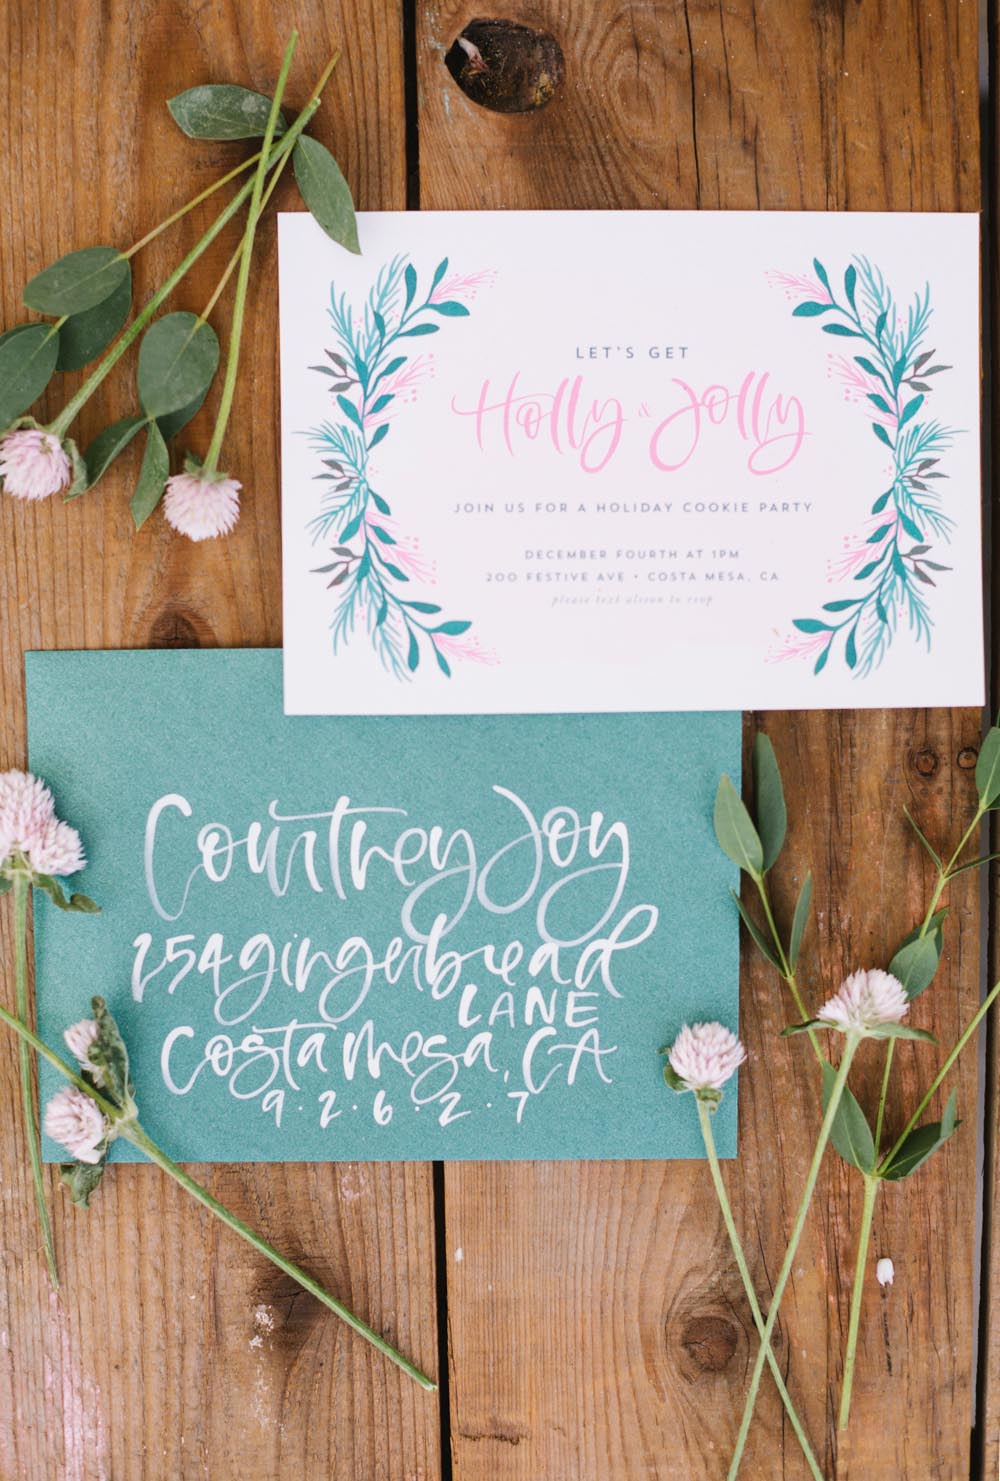 LET'S GET
Holly & Jolly
JOIN US FOR A HOLIDAY COOKIE PARTY
DECEMBER FOURTH AT 1PM
200 FESTIVE AVE • COSTA MESA, CA
please text alison to rsvp
Courtney Joy
254 gingerbread
LANE
Costa Mesa, CA
9·2·6·2·7